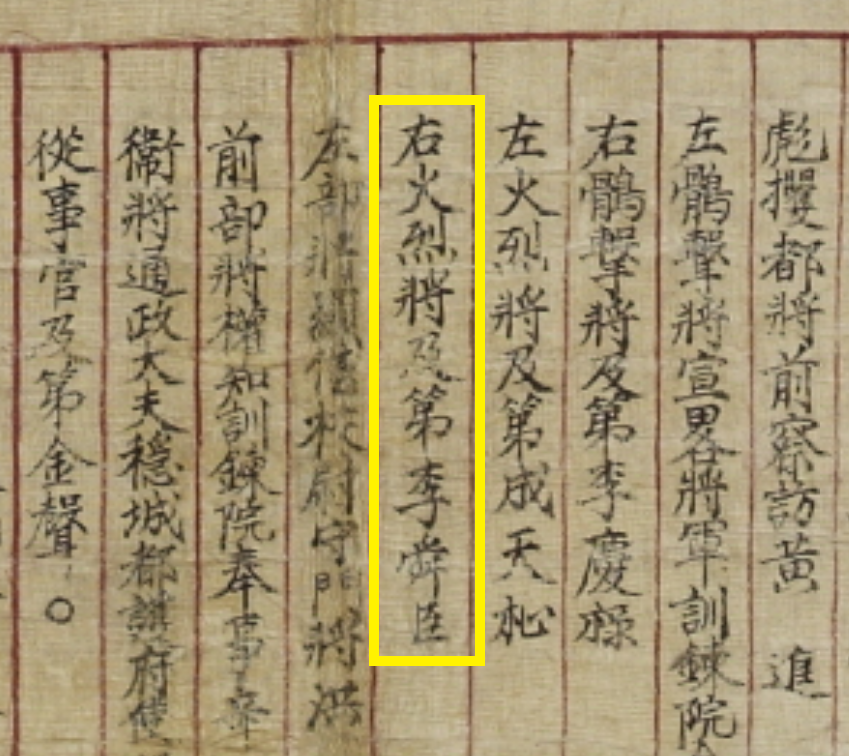 彪攫都將前察訪黃 進
左鶻擊將宣畧將軍訓鍊院
右鶻擊將及第李慶祿
左火烈將及第成天祉
右火烈將及第李舜臣
左部將顯信校尉守門將洪
前部將權知訓鍊院奉事辛
衛將通政大夫穩城都護府使
從事官及第金聲○